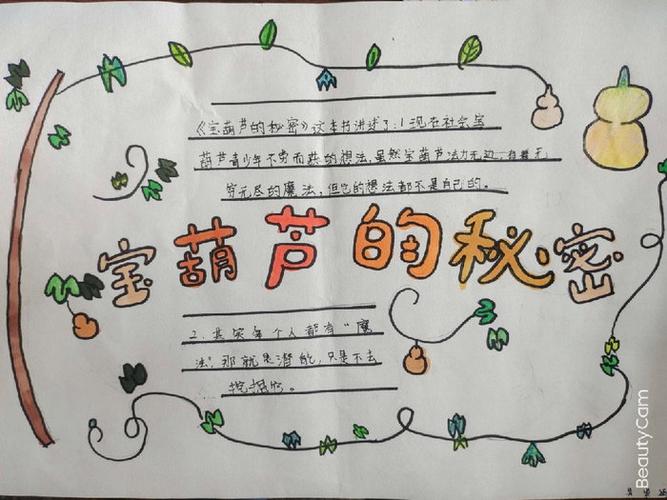 《宝葫芦的秘密》这本书讲述了：1现在社会宝
葫芦青少年不劳而获的想法，虽然宝葫芦法力无边，有着无
穷无尽的魔法，但它的想法都不是自己的。
宝葫芦的秘密
2、其实每个人都有“魔
法”，那就是潜能，只是不去
挖掘它。
BeautyCam